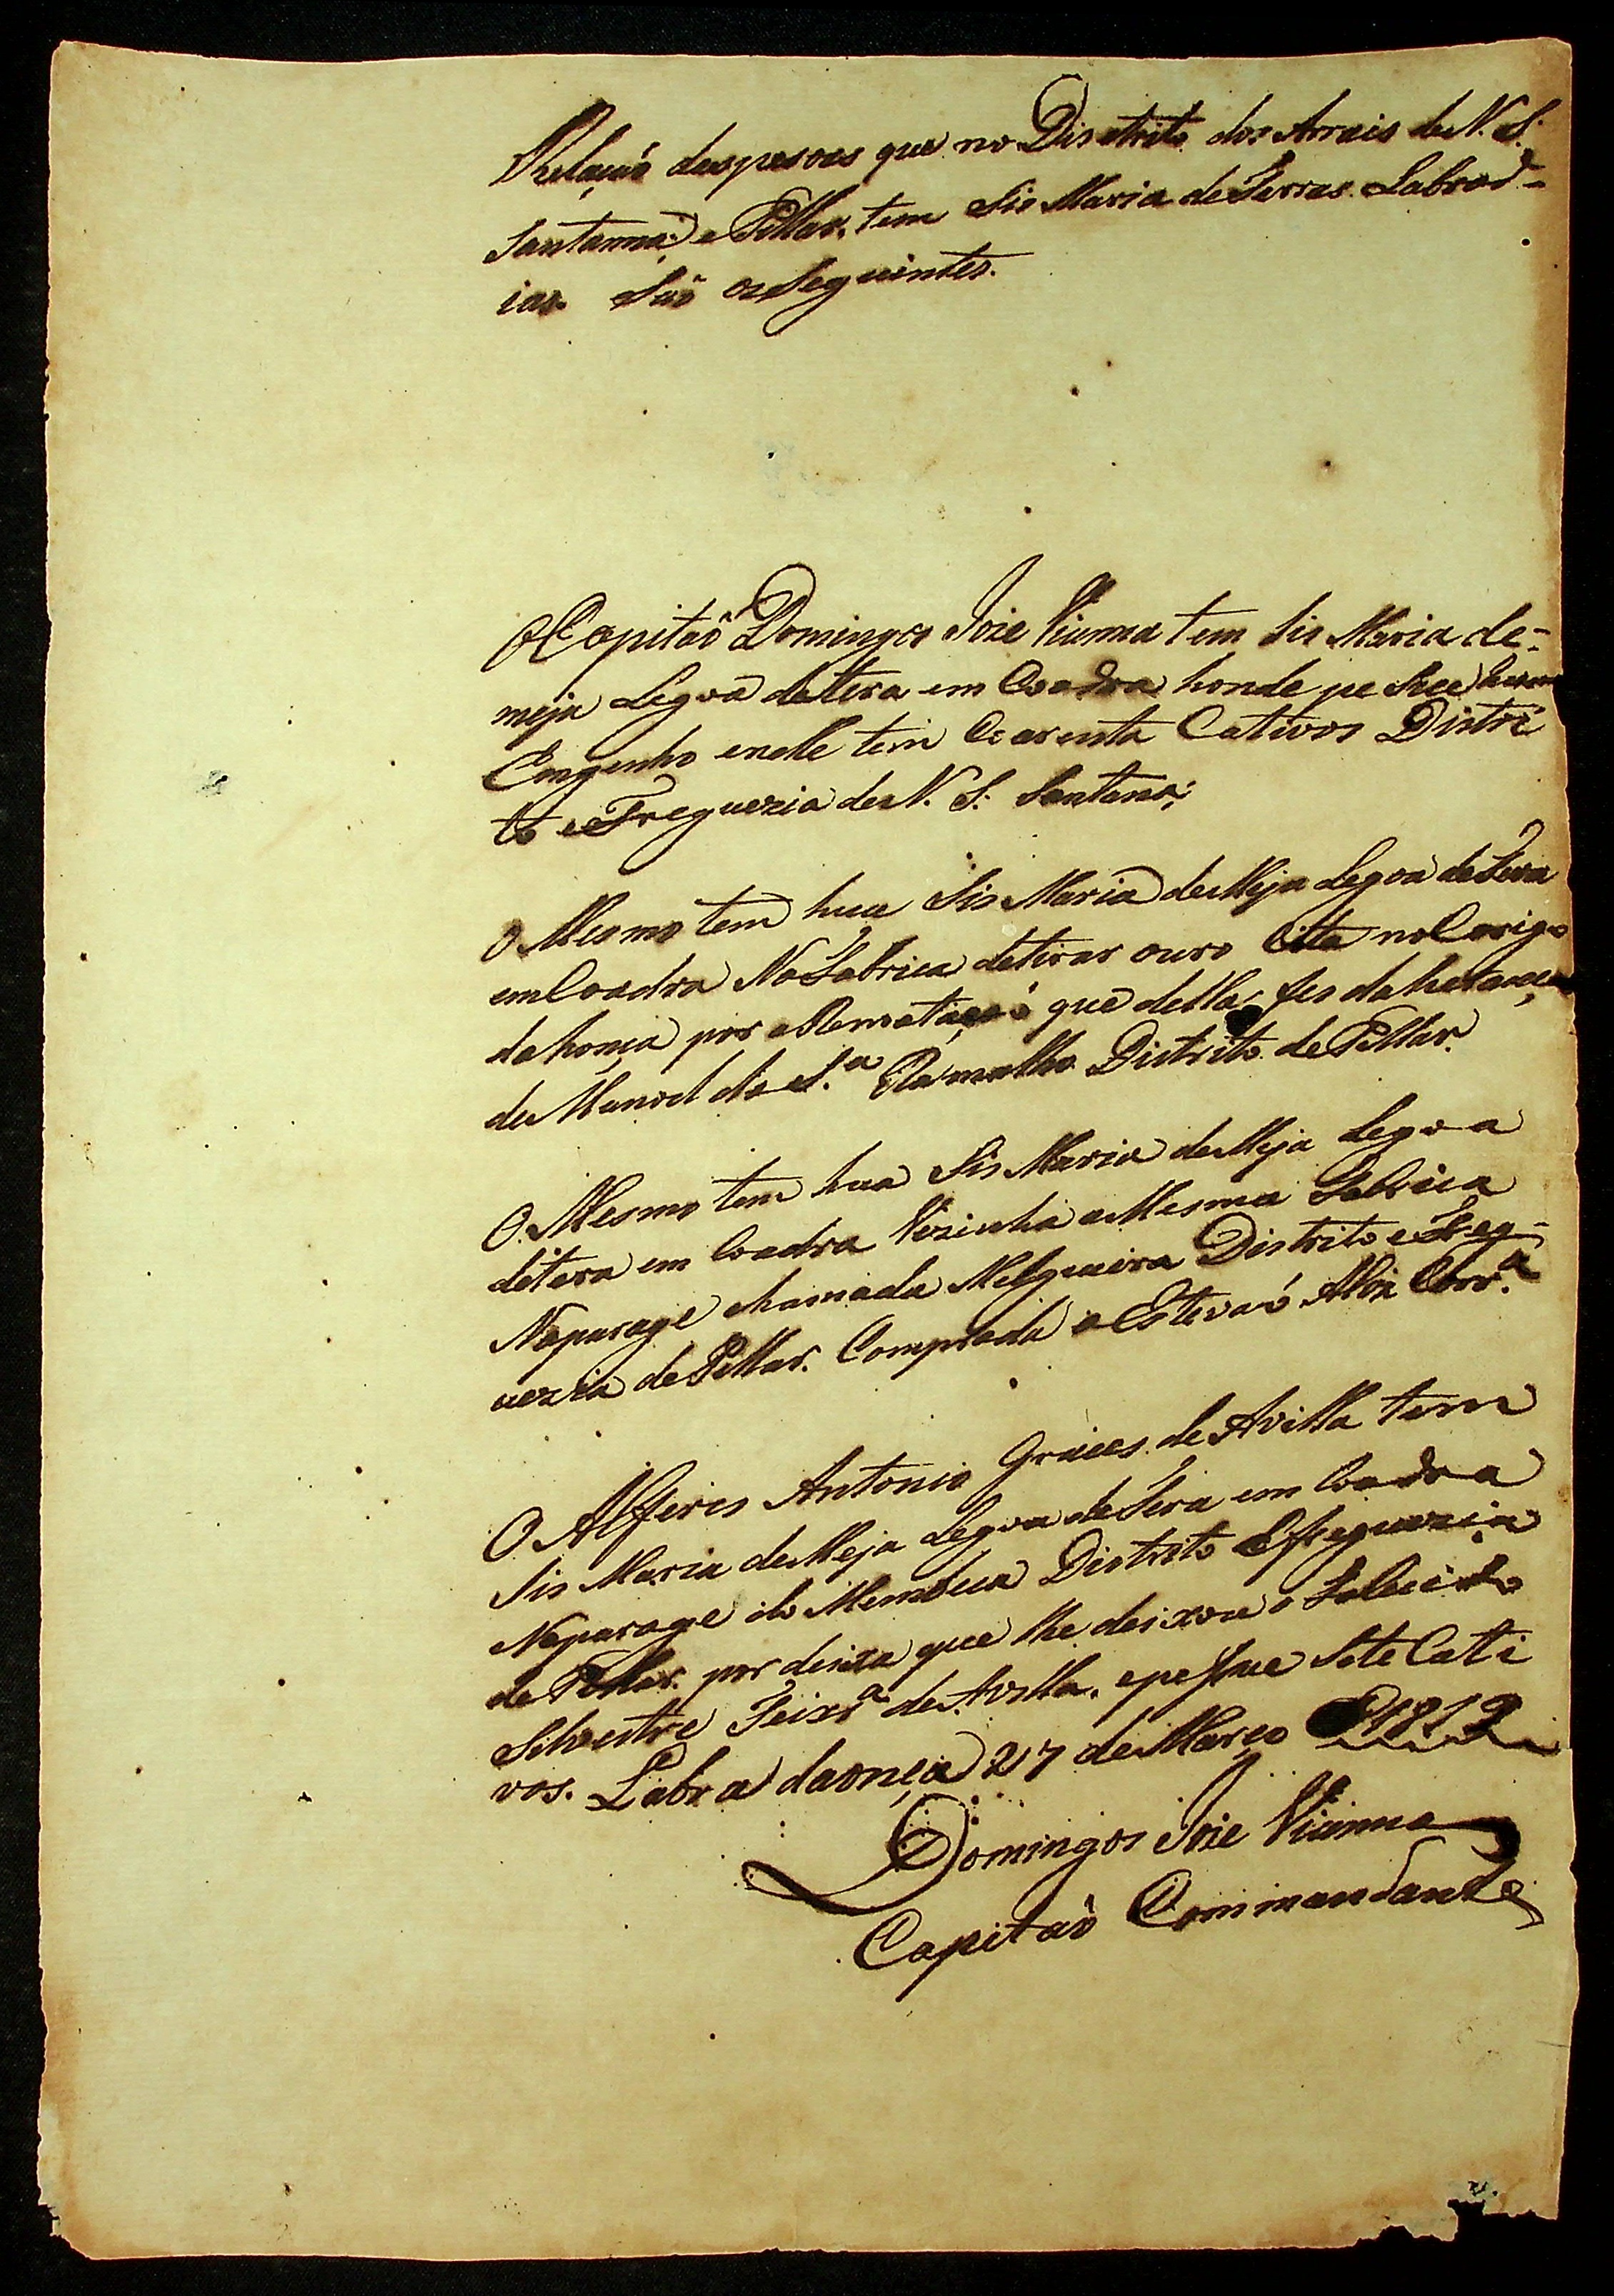 Rhelaçaõ daspesoas que no Disetrito dos Arrais de N. S.
Santanna; e Pillar. tem Sis Maria de Terras Labrad-
ias. Saõ os Seguintes.
O Capitaõ Domingos Joze Vianna tem Sis Maria de-
meja Legoa deterra em Coadra honde pesuee hum
Engenho enelle tem Coarenta Cativos Distri
to e Freguezia de N. S. Santana;
O Mesmo tem hua Sis Maria de Meja Legoa de Terra
em Coadra Na Fabrica detirar ouro Cita no Corigo
da honça por a Rematação que della fes da heranca
de Manoel da S.ª Ramalho Distrito de Pillar.
O Mesmo tem hua Sis Maria de Meja Legoa
detera em Coadra Vizinha a Mesma Fabrica
Naparage chamada Melgueira Distrito e Freg-
uezia de Pillar. Comprada a Estevaõ Alz Corr.ª
O Alferes Antonio Graces de Avilla tem
Sis Maria de Meja Legoa de Tera em Coadra
Naparage do Membeca Distrito E freguezia
de Pillar. por deixa que lhe deixou o Falecido
Silvestre Teixrª de Avilla. epesue Sete Cati
vos. Labra daonça 27 de Março 1812
Domingos Joze Vianna
Capitaõ Commandante